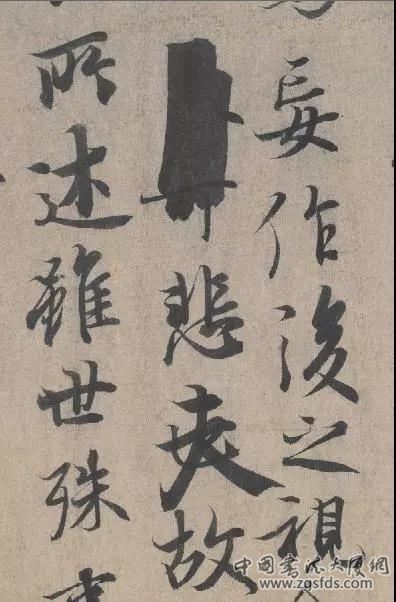 妄作後之視
悲夫故
所述雖世殊
中國書法大厦網
www.zgsfds.com